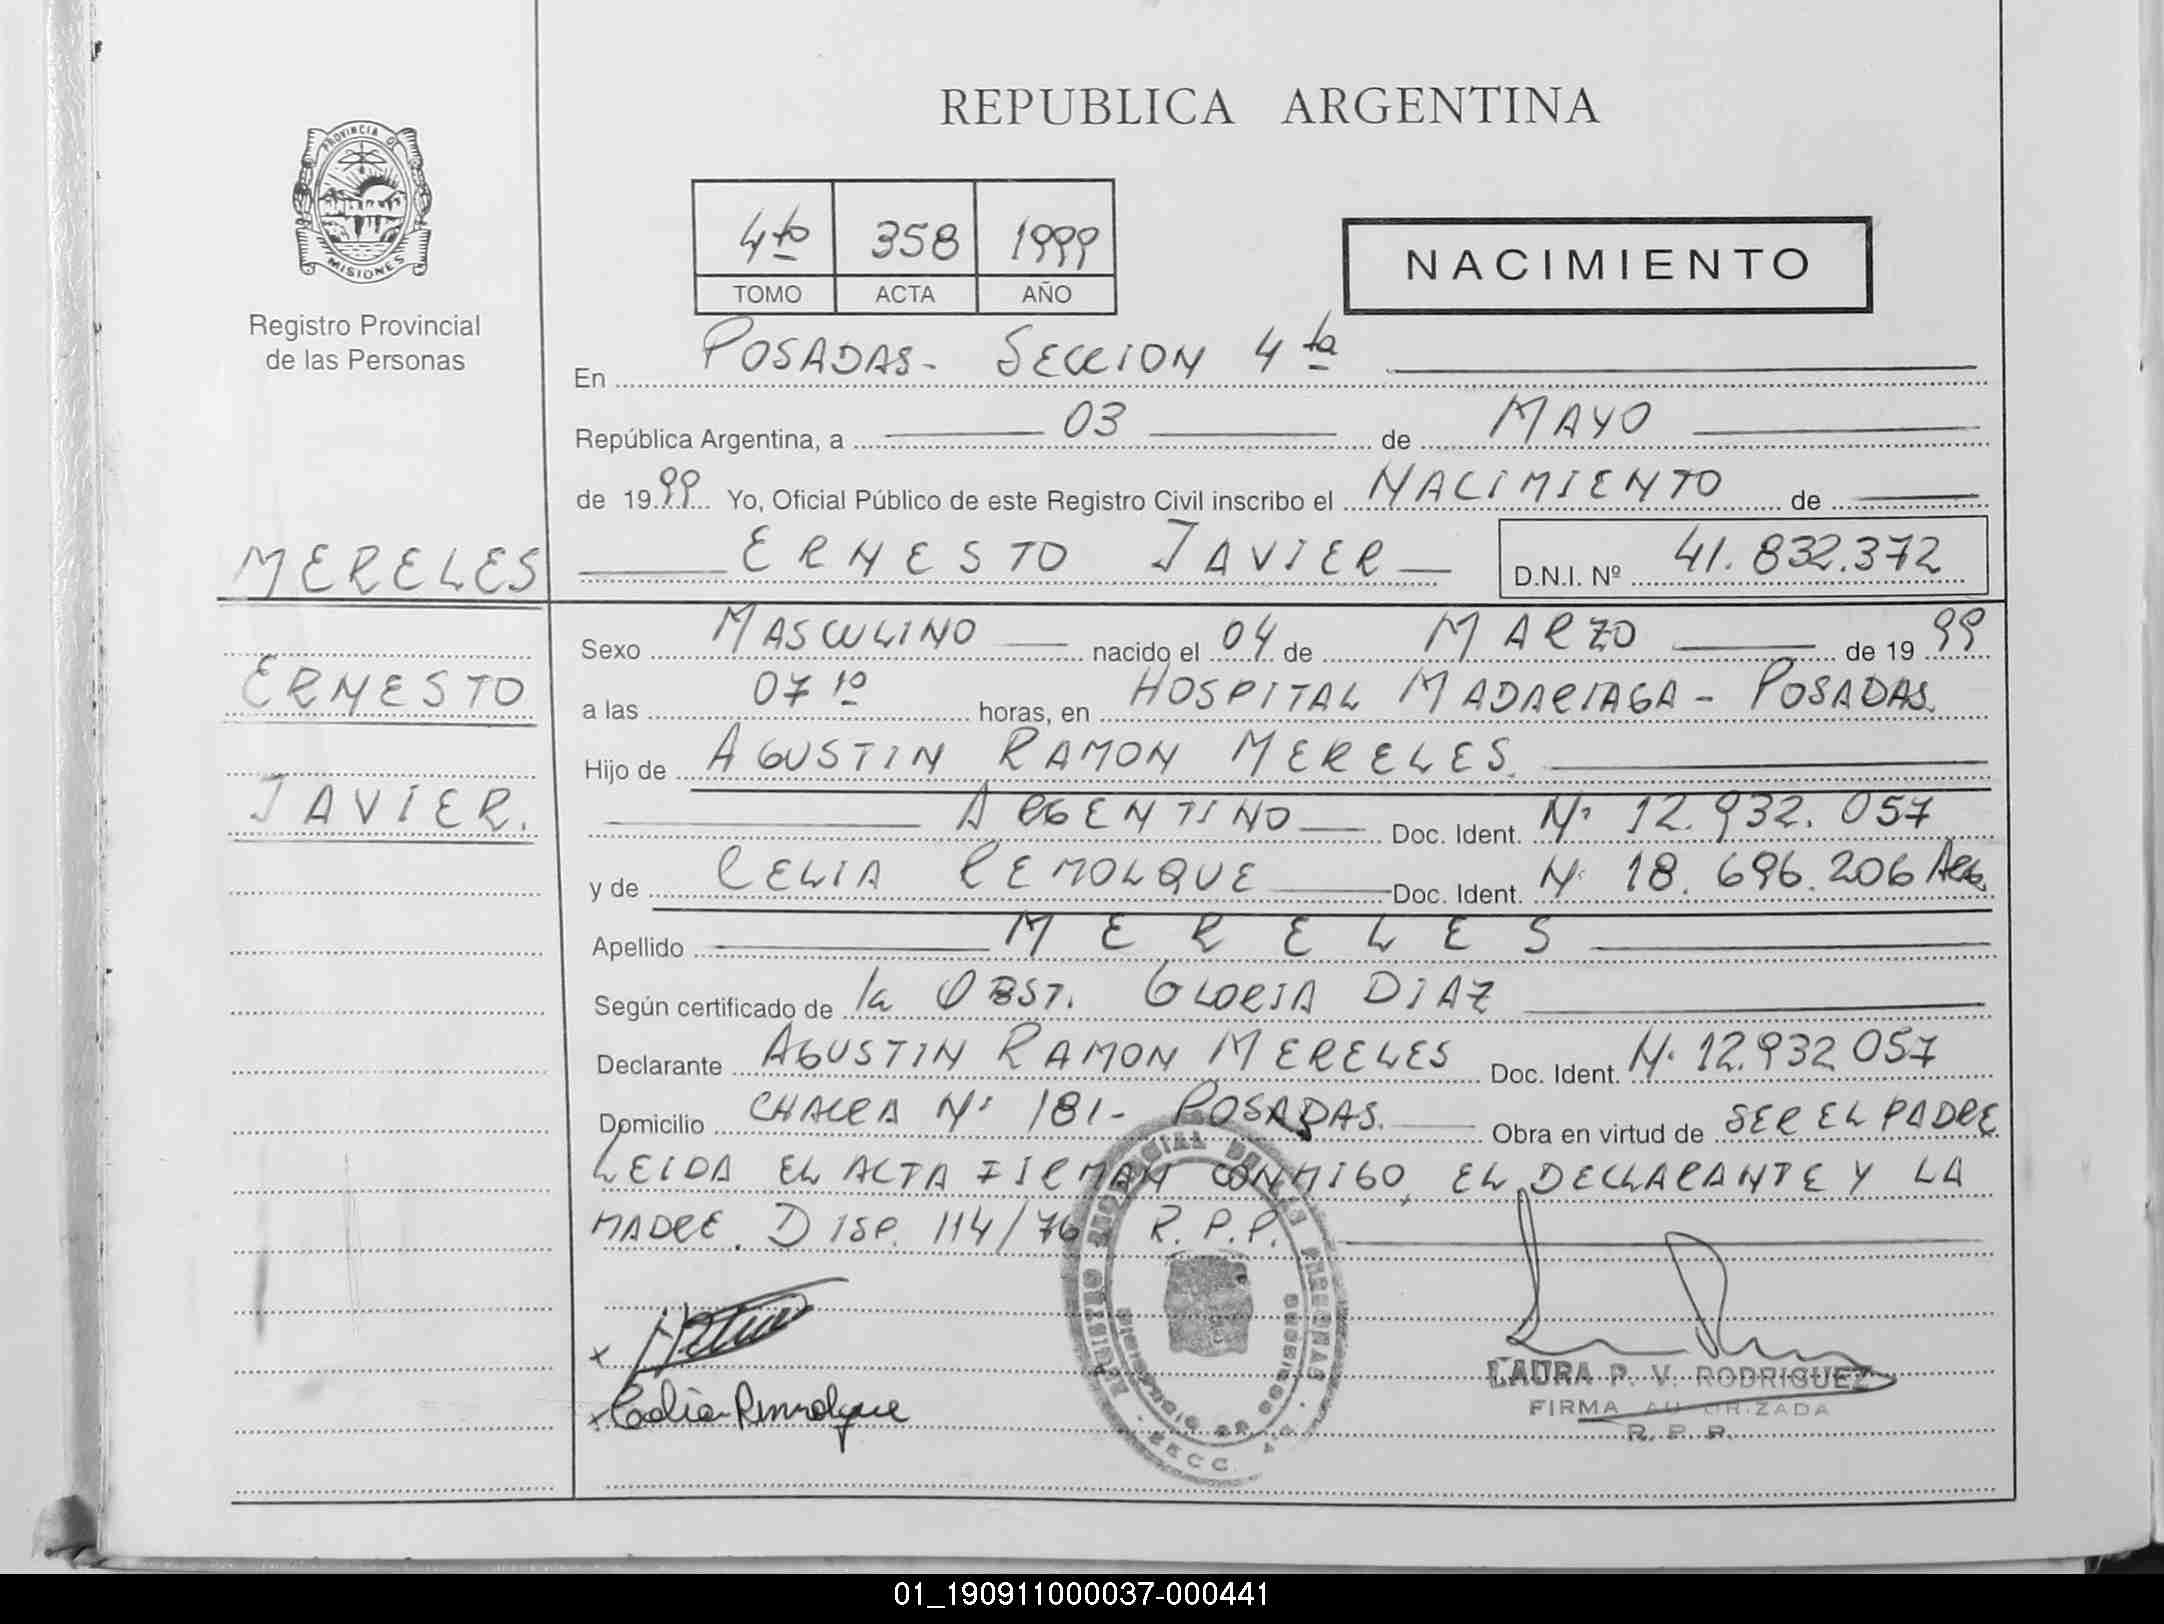 REPUBLICA ARGENTINA
PROVINCIA DE
MISIONES
Registro Provincial
de las Personas
4to 358 1999
TOMO ACTA AÑO
NACIMIENTO
En POSADAS- SECCION 4ta
República Argentina, a 03 de MAYO
de 1999 Yo, Oficial Público de este Registro Civil inscribo el NACIMIENTO de
MERELES
ERNESTO JAVIER D.N.I. Nº 41.832.372
Sexo MASCULINO nacido el 04 de MARZO de 1999
ERNESTO
a las 07 10 horas, en HOSPITAL MADARIAGA - POSADAS.
Hijo de AGUSTIN RAMON MERELES.
JAVIER.
ARGENTINO Doc. Ident. Nº 12.932.057
y de CELIA REMOLQUE Doc. Ident. Nº 18.696.206 ARG.
Apellido MERELES
Según certificado de la OBST. GLORIA DIAZ
Declarante AGUSTIN RAMON MERELES Doc. Ident. Nº 12.932 057
Domicilio CHACRA Nº 181- POSADAS. Obra en virtud de SER EL PADRE
LEIDA EL ACTA FIRMAN CONMIGO, EL DECLARANTE Y LA
MADRE. DISP. 114/76 R.P.P.
REGISTRO PROVINCIAL DE LAS PERSONAS
SECC. 4ta
Celia Remolque
LAURA P. V. RODRIGUEZ
FIRMA AUTORIZADA
R.P.P.
01_190911000037-000441